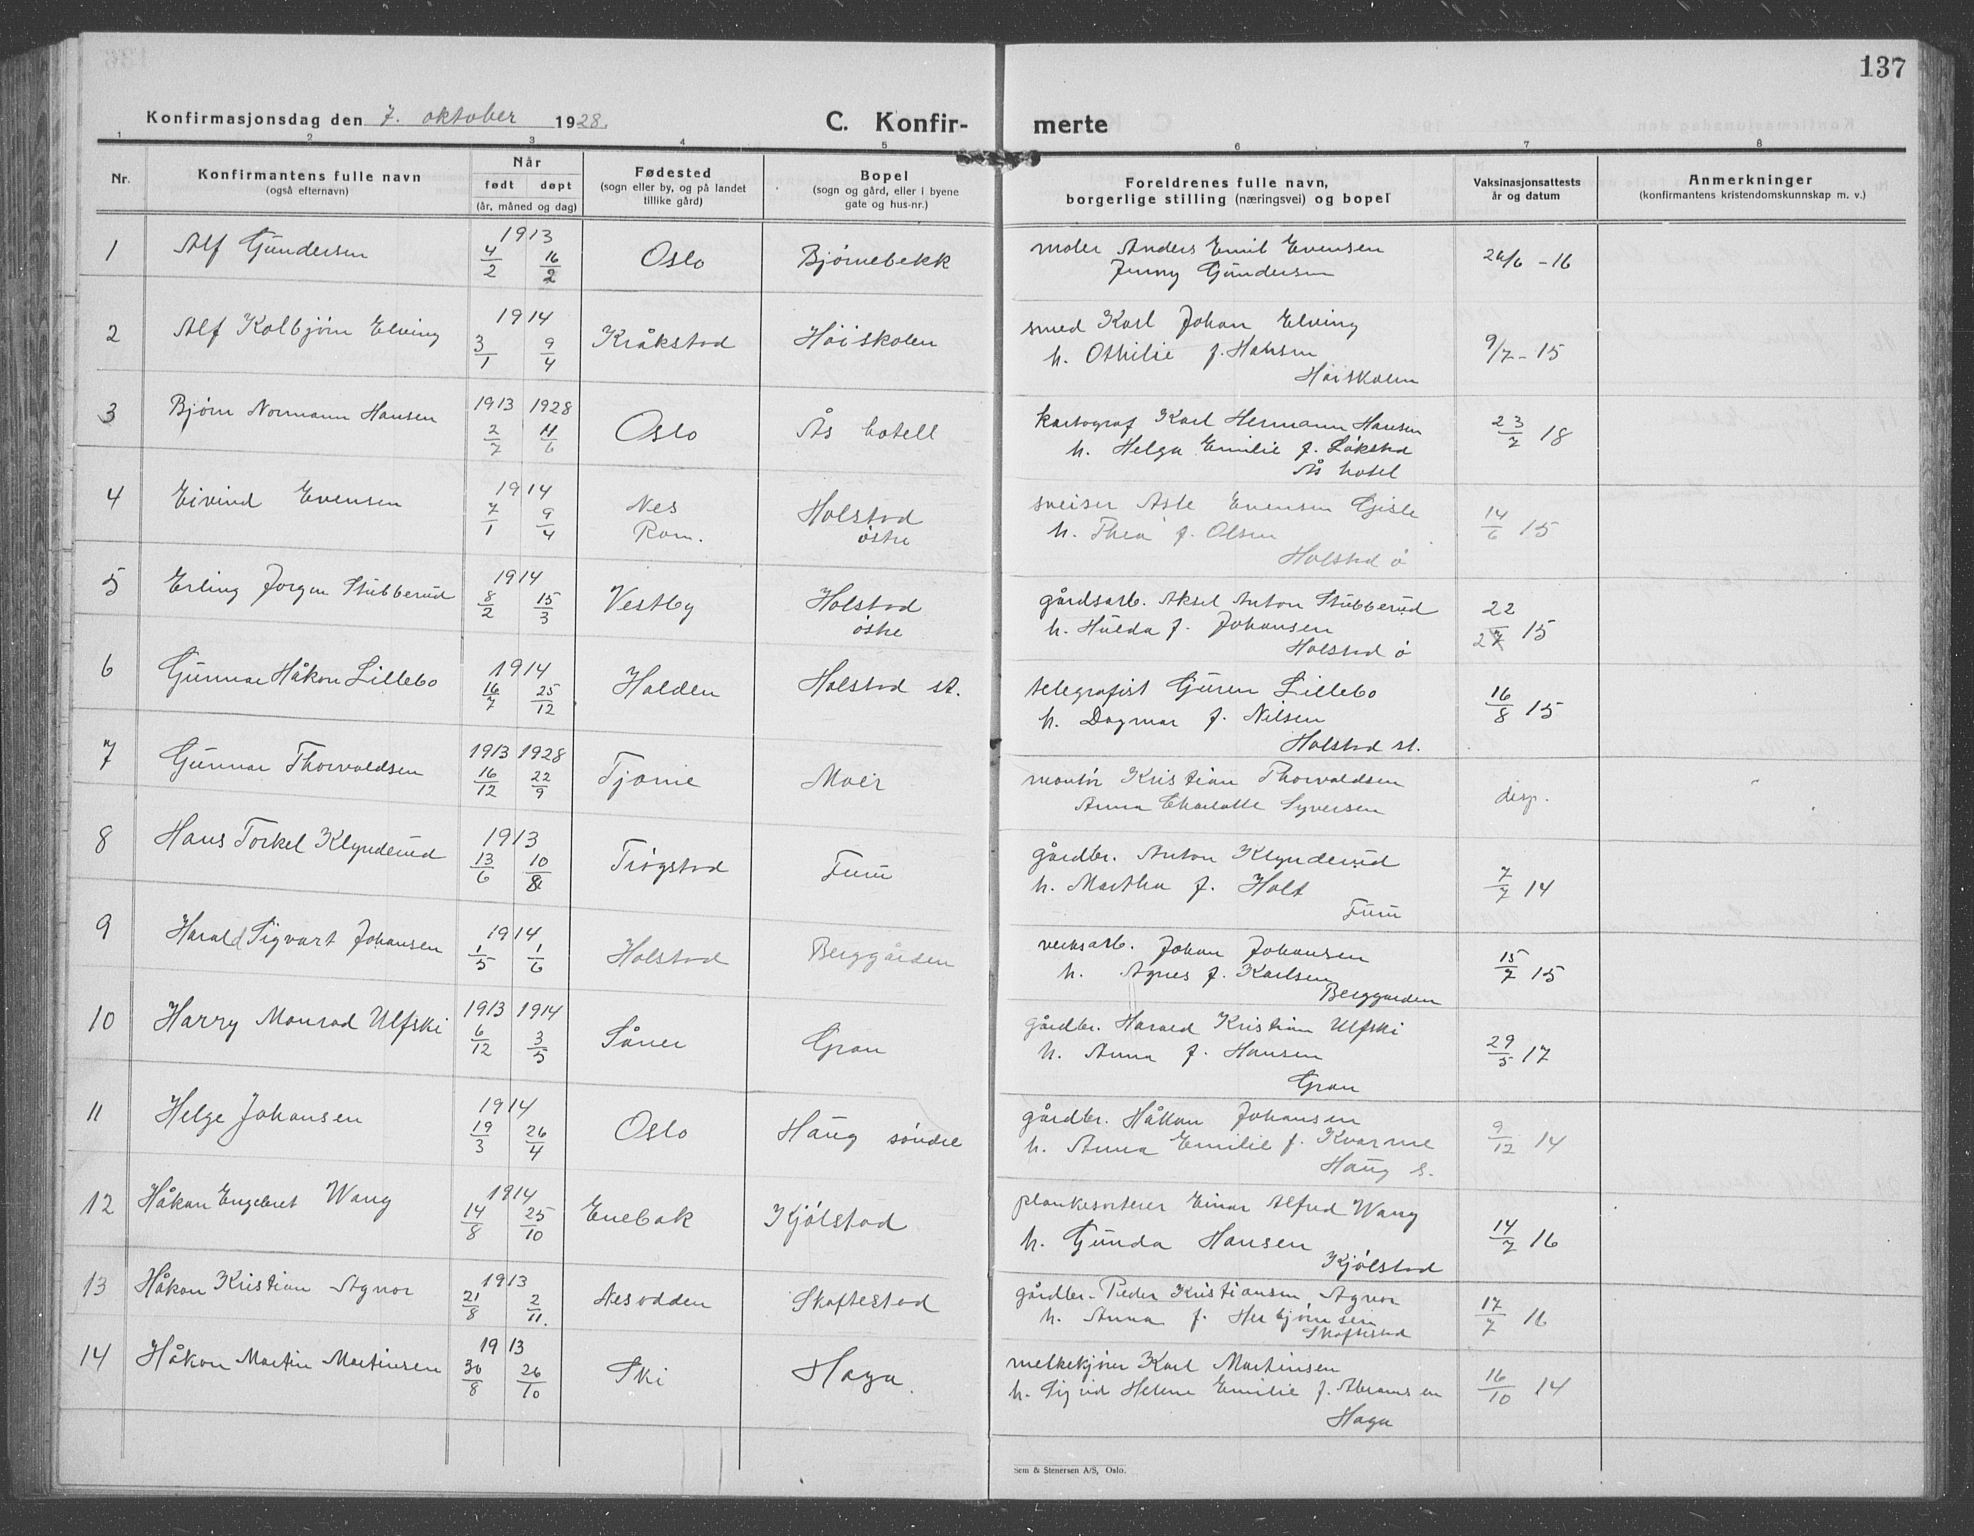 137
Konfirmasjonsdag den 7. oktober 1928. C. Konfir- merte
1 2 3 4 5 6 7 8
Nr. Konfirmantens fulle navn (også efternavn) Når født døpt (år, måned og dag) Fødested (sogn eller by, og på landet tillike gård) Bopel (sogn og gård, eller i byene gate og hus-nr.) Foreldrenes fulle navn, borgerlige stilling (næringsvei) og bopel Vaksinasjonsattests år og datum Anmerkninger (konfirmantens kristendomskunnskap m. v.)
1 Alf Gundersen 1913 4/2 16/2 Oslo Bjørnebekk maler Anders Emil Evensen 26/6 -16
Jenny Gundersen
2 Alf Kolbjørn Elving 1914 3/1 9/4 Kråkstad Høiskolen smed Karl Johan Elving 9/7 - 15
h. Othilie f. Hansen
Høiskolen
3 Bjørn Normann Hansen 1913 1928 2/7 11/6 Oslo Ås hotell kartograf Karl Hermann Hansen 23/7 18
h. Helga Emilie f. Løkstad
Ås hotel
4 Eivind Evensen 1914 7/1 9/4 Nes Rom. Holstad østre sveiser Asle Evensen Gisle 14/6 15
h. Thea f. Olsen
Holstad ø
5 Erling Jørgen Stubberud 1914 8/2 15/3 Vestby Holstad østre gårdsarb. Aksel Anton Stubberud 22/27 15
h. Hulda f. Johansen
Holstad ø
6 Gunnar Håkon Lillebo 1914 16/7 25/12 Halden Holstad st. telegrafist Guren Lillebo 16/8 15
h. Dagmar f. Nilsen
Holstad st.
7 Gunnar Thorvaldsen 1913 1928 16/12 22/9 Tjøme Moer montør Kristian Thorvaldsen disp.
Anna Charlotte Syversen
8 Hans Torkel Klynderud 1913 13/6 10/8 Trøgstad Furu gårdbr. Anton Klynderud 7/7 14
h. Martha f. Holt
Furu
9 Harald Sigvart Johansen 1914 1/5 1/6 Holstad Berggården verksarb. Johan Johansen 15/7 15
h. Agnes f. Karlsen
Berggarden
10 Harry Monrad Ulfski 1913 1914 6/12 3/5 Såner Gran gårdbr. Harald Kristian Ulfski 29/5 17
h. Anna f. Hansen
Gran
11 Helge Johansen 1914 19/3 26/4 Oslo Haug søndre gårdbr. Håkon Johansen 9/12 14
h. Anna Emilie f. Kvarme
Haug s.
12 Håkon Engebret Wang 1914 14/8 25/10 Enebak Kjølstad plankesorterer Einar Alfred Wang 14/7 16
h. Gunda Hansen
Kjølstad
13 Håkon Kristian Agnor 1913 21/8 2/11. Nesodden Skaftestad gårdbr. Peder Kristiansen Agnor 17/7 16
h. Anna f. Herbjørnsen
Skaftestad
14 Håkon Martin Martinsen 1913 30/8 26/10 Ski Haga. melkekjører Karl Martinsen 16/10 14
h. Sigrid Helene Emilie f. Abramsen
Haga
Sem & Stenersen A/S, Oslo.